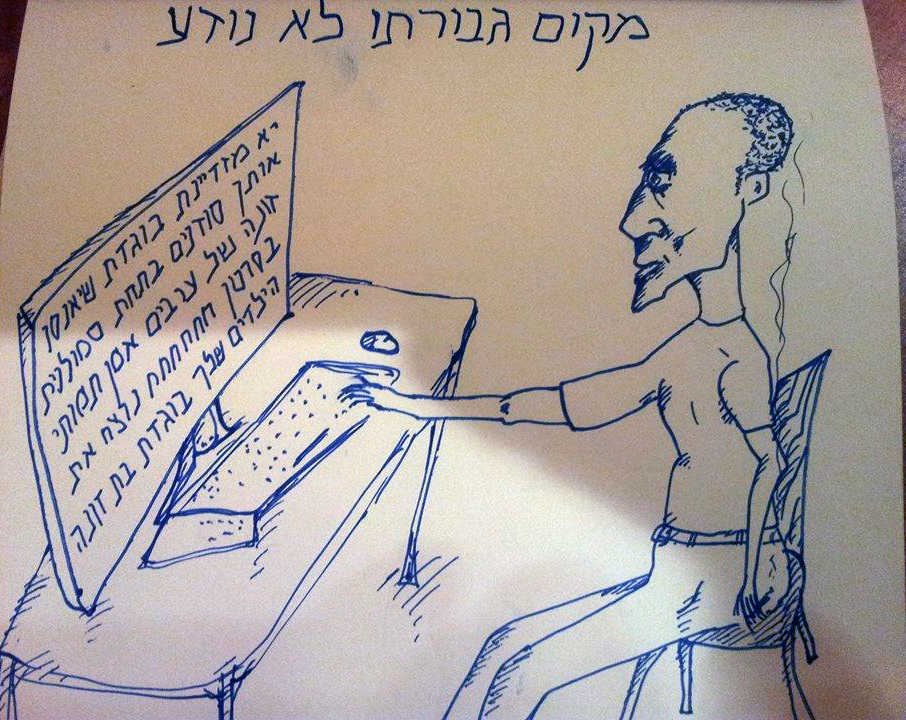 מקום גבורתו לא נודע
יא מזדיינת בוגדת שיאנסו
אותך סודנים בתחת סמולנית
זונה של ערבים אמן תמותי
בסרטן חחחחחח נרצח את
הילדים שלך בוגדת בת זונה